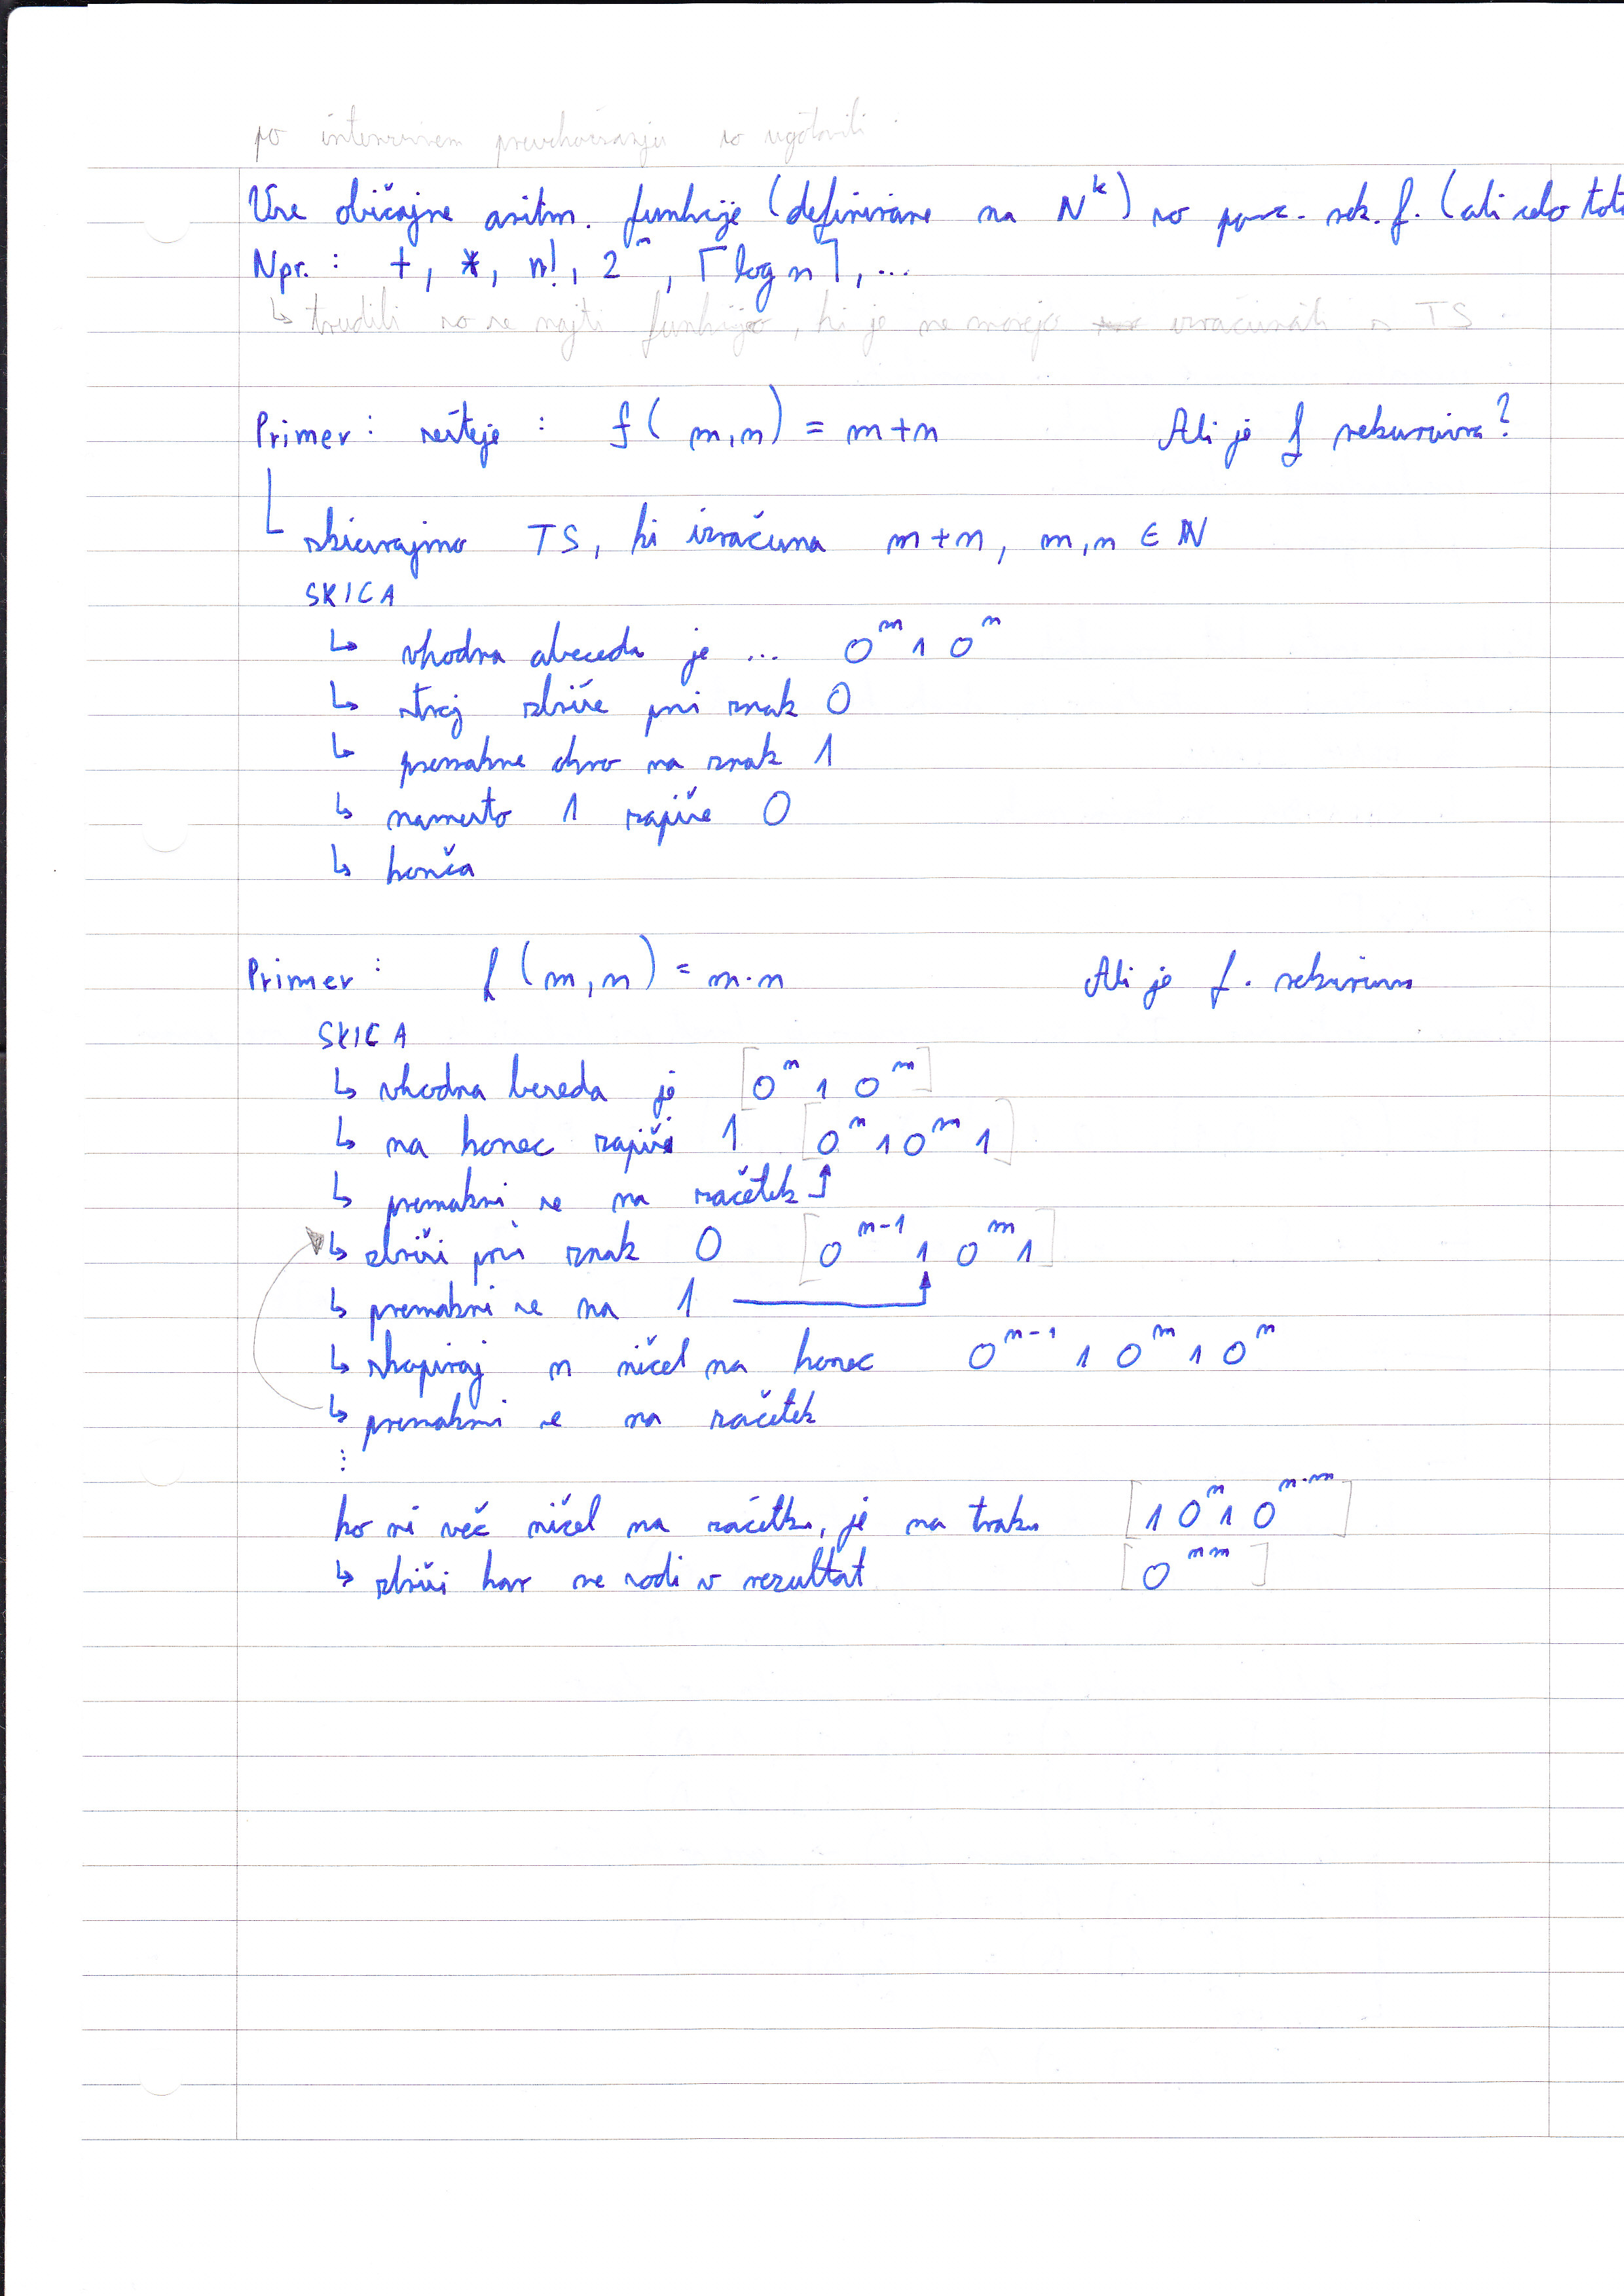 po intenzivnem preučevanju so ugotovili :
Vse običajne aritm. funkcije (definirane na N^k) so parc. rek. f. (ali celo tot
Npr. : +, *, n!, 2^n, ⌈log n⌉, ...
↳ trudili so se najti funkcijo, ki je ne morejo izračunati s TS.
Primer : sešteje : f(m,n) = m+n Ali je f rekurzivna?
skicirajmo TS, ki izračuna m+n, m,n ∈ ℕ
SKICA
↳ vhodna abeceda je ... 0^m 1 0^n
↳ stroj zbriše prvi znak 0
↳ premakne okno na znak 1
↳ namesto 1 zapiše 0
↳ konča
Primer : f(m,n) = m·n Ali je f. rekurzivna
SKICA
↳ vhodna beseda je [0^n 1 0^m]
↳ na konec zapiši 1 [0^n 1 0^m 1]
↳ premakni se na začetek
↳ zbriši prvi znak 0 [0^{n-1} 1 0^m 1]
↳ premakni se na 1
↳ skopiraj n ničel na konec 0^{n-1} 1 0^m 1 0^n
↳ premakni se na začetek
⋮
ko ni več ničel na začetku, je na traku [1 0^n 1 0^{n·m}]
↳ zbriši kar ne sodi v rezultat [0^{nm}]